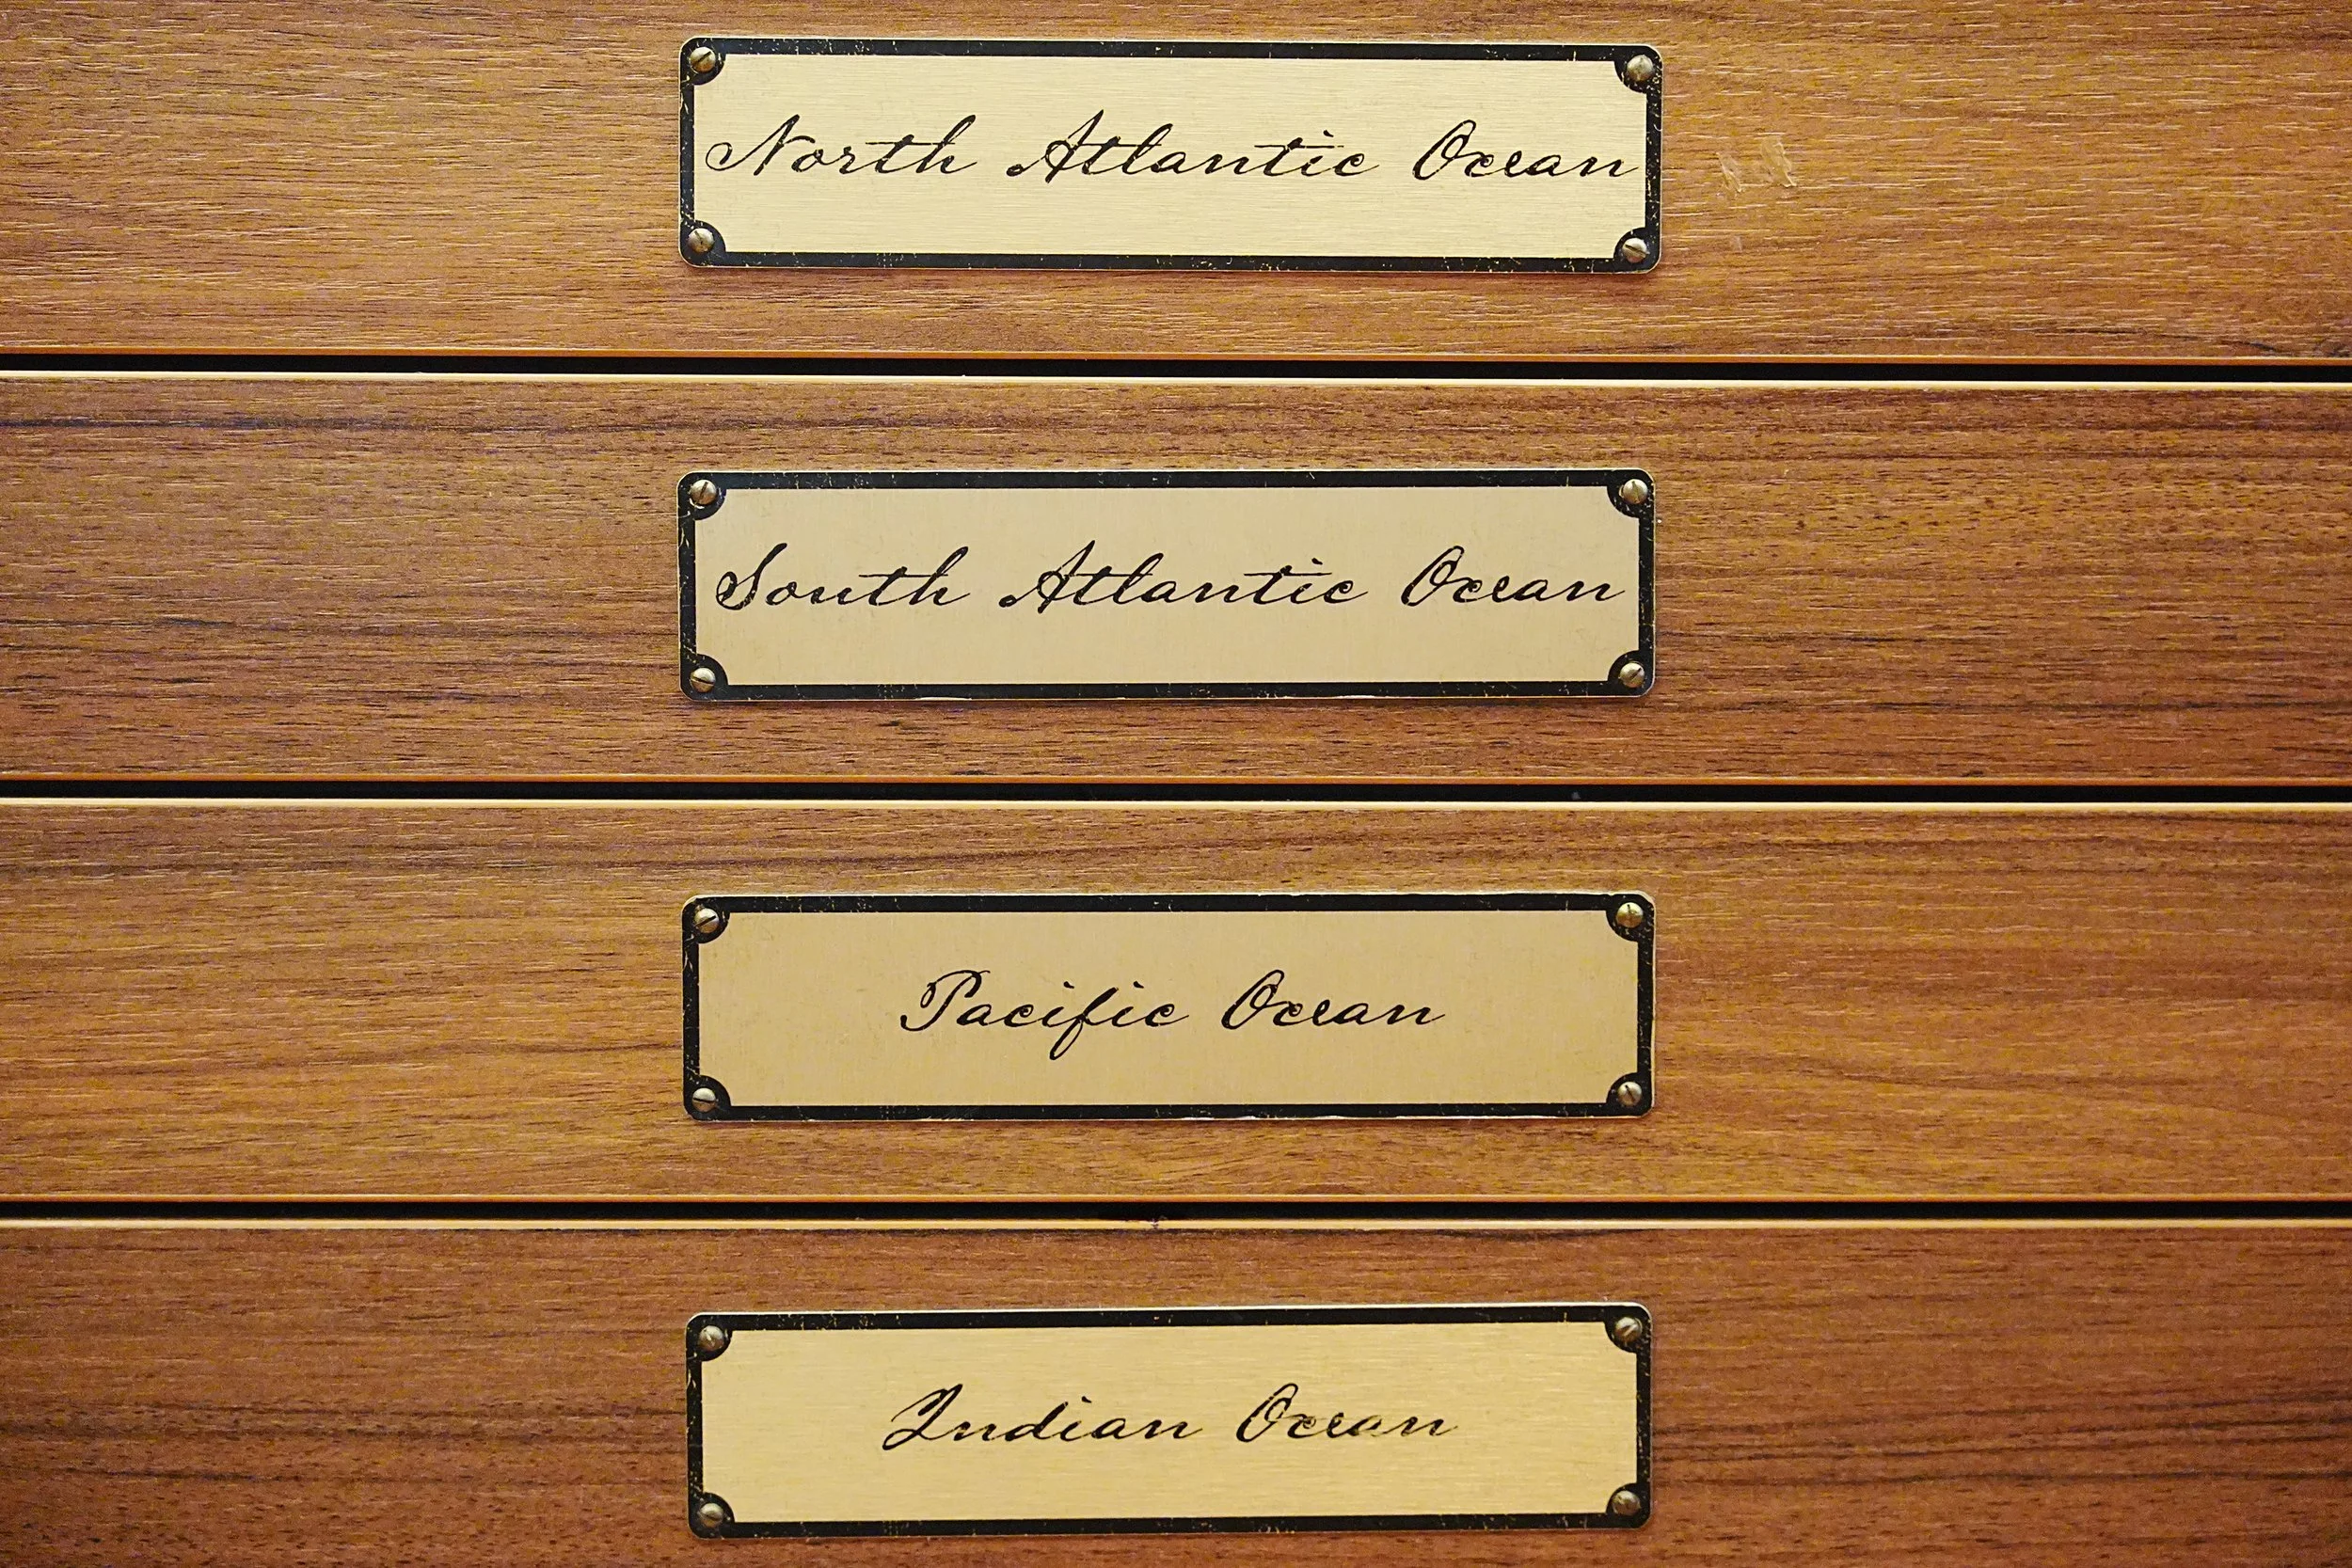 North Atlantic Ocean
South Atlantic Ocean
Pacific Ocean
Indian Ocean